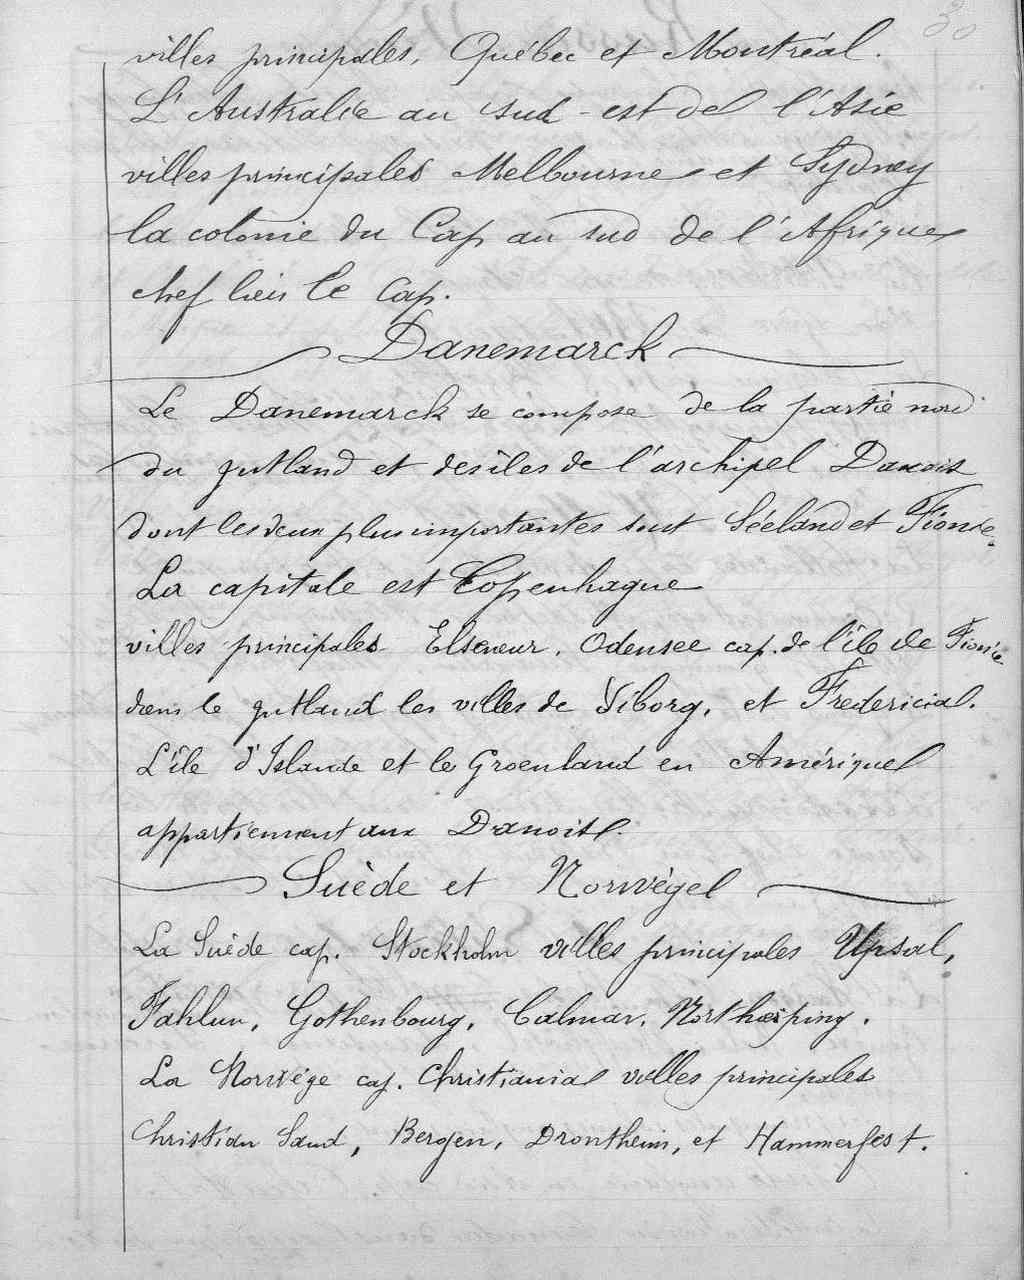 30
villes principales, Québec et Montréal.
L'Australie au sud-est de l'Asie
villes principales Melbourne et Sydney
la colonie du Cap au sud de l'Afrique
chef lieu le Cap.
Danemarck
Le Danemarck se compose de la partie nord
du jutland et des îles de l'archipel Danois
dont les deux plus importantes sont Séeland et Fionie.
La capitale est Copenhague
villes principales Elseneur, Odensee cap. de l'île de Fionie
dans le jutland les villes de Viborg, et Fredericia.
L'île d'Islande et le Groenland en Amérique
appartiennent aux Danois.
Suède et Norwége
La Suède cap. Stockholm villes principales Upsal,
Fahlun, Gothenbourg, Calmar, Northœping.
La Norwége cap. Christiania villes principales
Christian Sand, Bergen, Drontheim, et Hammerfest.